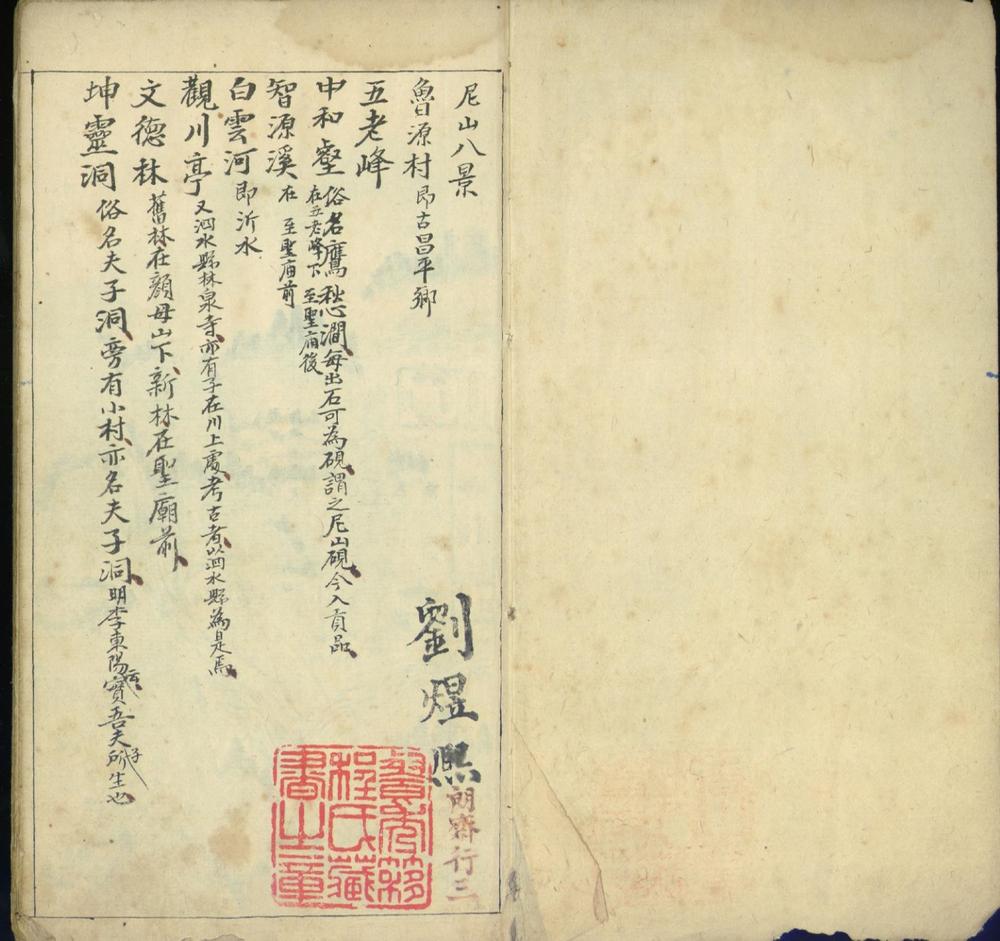 尼山八景
魯源村即古昌平鄉
五老峰
中和壑俗名鷹愁澗每出石可為硯謂之尼山硯今入貢品
在五老峰下至聖廟後
智源溪在至聖廟前
白雲河即沂水
觀川亭又泗水縣林泉寺亦有子在川上處考古者以泗水縣為是焉
文德林舊林在顏母山下新林在聖廟前
坤靈洞俗名夫子洞旁有小村亦名夫子洞明李東陽云實吾夫子所生也
劉煜熙
朗齋行三
程氏藏
書之章